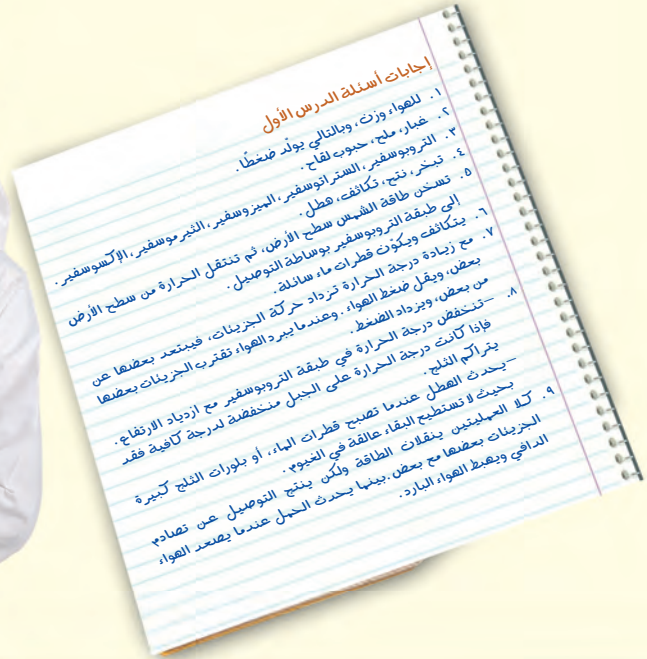 إجابات أسئلة الدرس الأول
١. للهواء وزن، وبالتالي يولّد ضغطًا.
٢. غبار، ملح، حبوب لقاح.
٣. التروبوسفير، الستراتوسفير، الميزوسفير، الثيرموسفير، الإكسوسفير.
٤. تبخر، نتح، تكاثف، هطل.
٥. تسخن طاقة الشمس سطح الأرض، ثم تنتقل الحرارة من سطح الأرض
إلى طبقة التروبوسفير بوساطة التوصيل.
٦. يتكاثف ويكوّن قطرات ماء سائلة.
٧. مع زيادة درجة الحرارة تزداد حركة الجزيئات، فيبتعد بعضها عن
بعض، ويقل ضغط الهواء. وعندما يبرد الهواء تقترب الجزيئات بعضها
من بعض، ويزداد الضغط.
٨. –تنخفض درجة الحرارة في طبقة التروبوسفير مع ازدياد الارتفاع.
فإذا كانت درجة الحرارة على الجبل منخفضة لدرجة كافية فقد
يتراكم الثلج.
–يحدث الهطل عندما تصبح قطرات الماء، أو بلورات الثلج كبيرة
بحيث لا تستطيع البقاء عالقة في الغيوم.
٩. كلا العمليتين ينقلان الطاقة ولكن ينتج التوصيل عن تصادم
الجزيئات بعضها مع بعض. بينما يحدث الحمل عندما يصعد الهواء
الدافي ويهبط الهواء البارد.